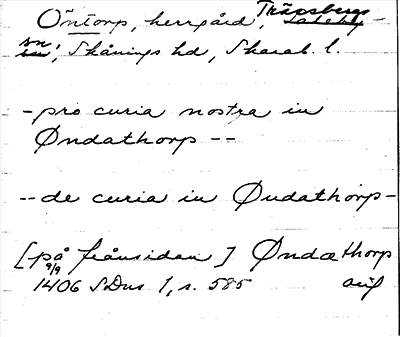 Öntorp, herrgård, Träpsbergs
sn, Skånings hd, Skarab. l.
- pro curia nostra in
Øndathorp --
-- de curia in Øndathorp -
[på frånsidan] Øndæthorp
9/9 1406 SDns 1, s. 585 avg